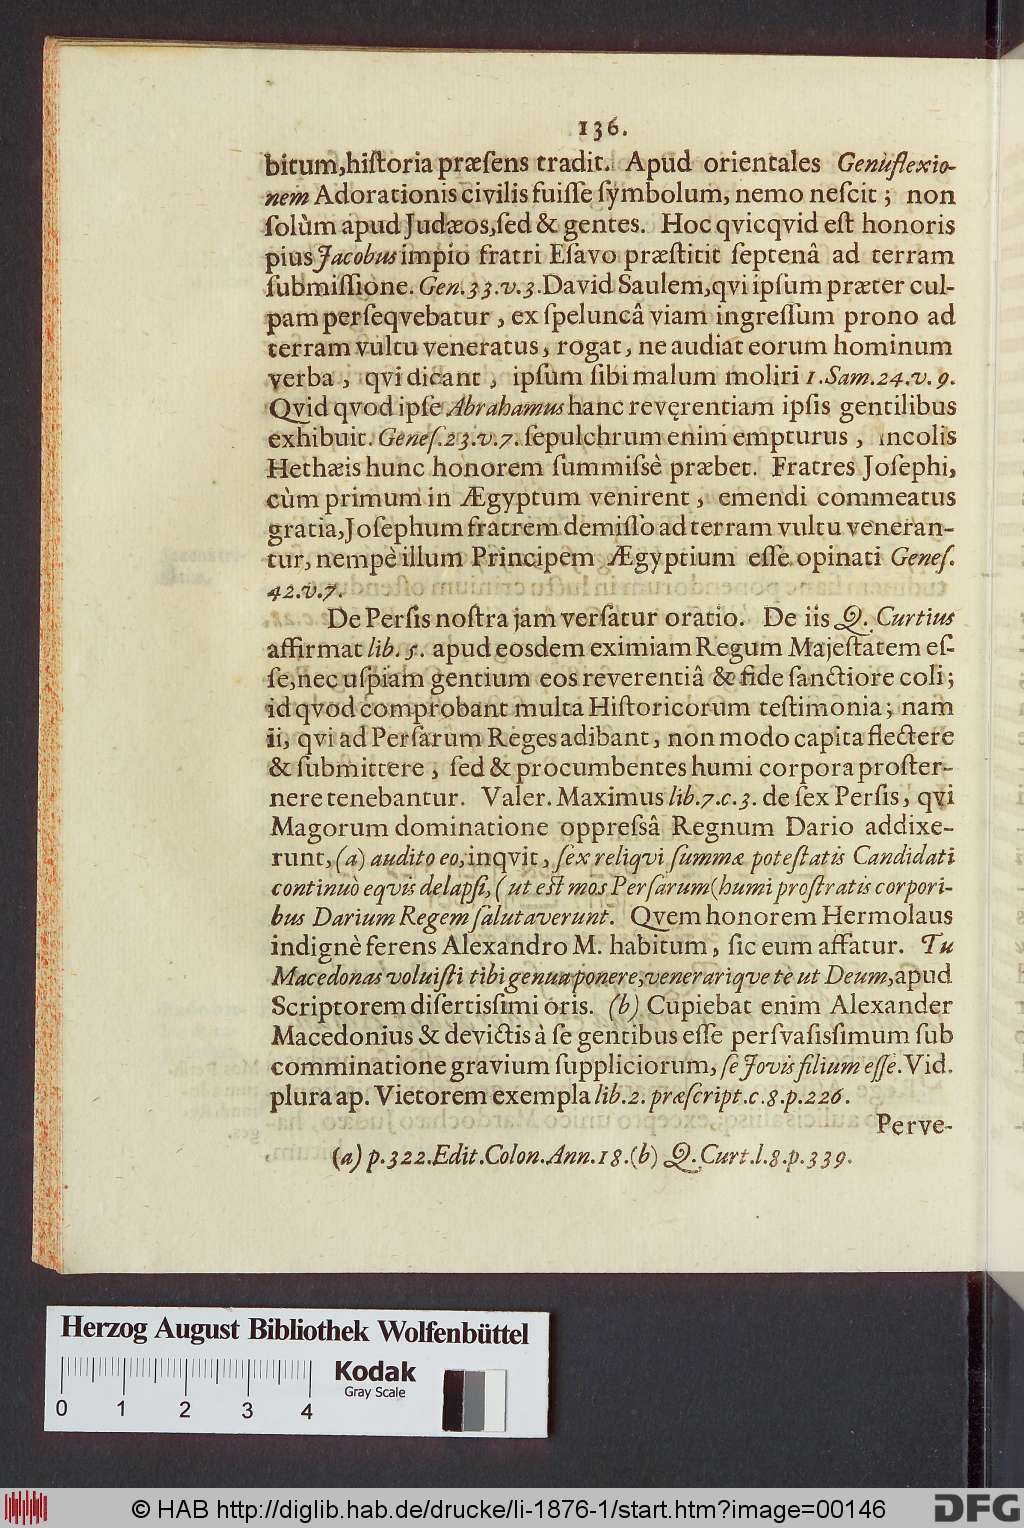 136.
bitum,hiſtoria præſens tradit. Apud orientales Genuflexio-
nem Adorationis civilis fuiſſe ſymbolum, nemo neſcit; non
ſolùm apud Judæos,ſed & gentes. Hoc qvicqvid eſt honoris
pius Jacobus impio fratri Eſavo præſtitit ſeptenâ ad terram
ſubmiſſione. Gen.33.v.3.David Saulem,qvi ipſum præter cul-
pam perſeqvebatur, ex ſpeluncâ viam ingreſſum prono ad
terram vultu veneratus, rogat, ne audiat eorum hominum
verba, qvi dicant, ipſum ſibi malum moliri 1.Sam.24.v.9.
Qvid qvod ipſe Abrahamus hanc reverentiam ipſis gentilibus
exhibuit. Geneſ.23.v.7. ſepulchrum enim empturus, incolis
Hethæis hunc honorem ſummiſsè præbet. Fratres Joſephi,
cùm primum in Ægyptum venirent, emendi commeatus
gratia,Joſephum fratrem demiſſo ad terram vultu veneran-
tur, nempè illum Principem Ægyptium eſſe opinati Geneſ.
42.v.7.
De Perſis noſtra jam verſatur oratio. De iis Q. Curtius
affirmat lib. 5. apud eosdem eximiam Regum Majeſtatem eſ-
ſe,nec uſpiam gentium eos reverentiâ & fide ſanctiore coli;
id qvod comprobant multa Hiſtoricorum teſtimonia; nam
ii, qvi ad Perſarum Reges adibant, non modo capita flectere
& ſubmittere, ſed & procumbentes humi corpora proſter-
nere tenebantur. Valer. Maximus lib.7.c.3. de ſex Perſis, qvi
Magorum dominatione oppreſsâ Regnum Dario addixe-
runt, (a) audito eo,inqvit, ſex reliqvi ſummæ poteſtatis Candidati
continuò eqvis delapſi, (ut eſt mos Perſarum(humi proſtratis corpori-
bus Darium Regem ſalutaverunt. Qvem honorem Hermolaus
indignè ferens Alexandro M. habitum, ſic eum affatur. Tu
Macedonas voluiſti tibi genua ponere,venerariqve te ut Deum,apud
Scriptorem diſertisſimi oris. (b) Cupiebat enim Alexander
Macedonius & devictis à ſe gentibus eſſe perſvaſisſimum ſub
comminatione gravium ſuppliciorum, ſe Jovis filium eſſe. Vid.
plura ap. Vietorem exempla lib.2. præſcript.c.8.p.226.
Perve-
(a) p.322.Edit.Colon.Ann.18.(b) Q.Curt.l.8.p.339.
Herzog August Bibliothek Wolfenbüttel
Kodak
Gray Scale
0 1 2 3 4
© HAB http://diglib.hab.de/drucke/li-1876-1/start.htm?image=00146
DFG